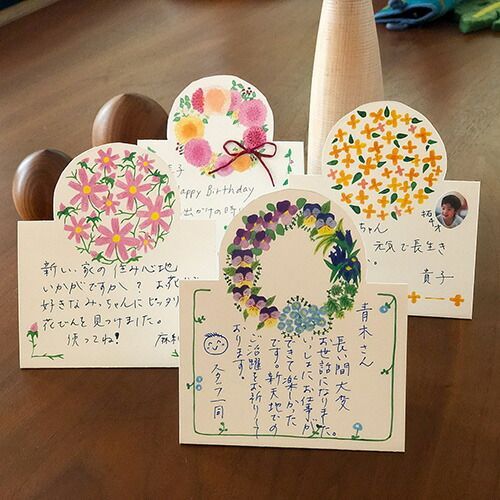 新しい家の住み心地
いかがですか? お花
好きなみ、ちゃんにピッタリ
花びんを見つけました。
使ってね!
麻
子
Happy Birthday
お出かけの時
ちゃん
元気で長生き
貴子
青木さん
長い間大変
お世話になりました。
いっしょにお仕事が
できて楽しかった
です。新天地での
ご活躍をお祈りして
おります。
スタッフ一同